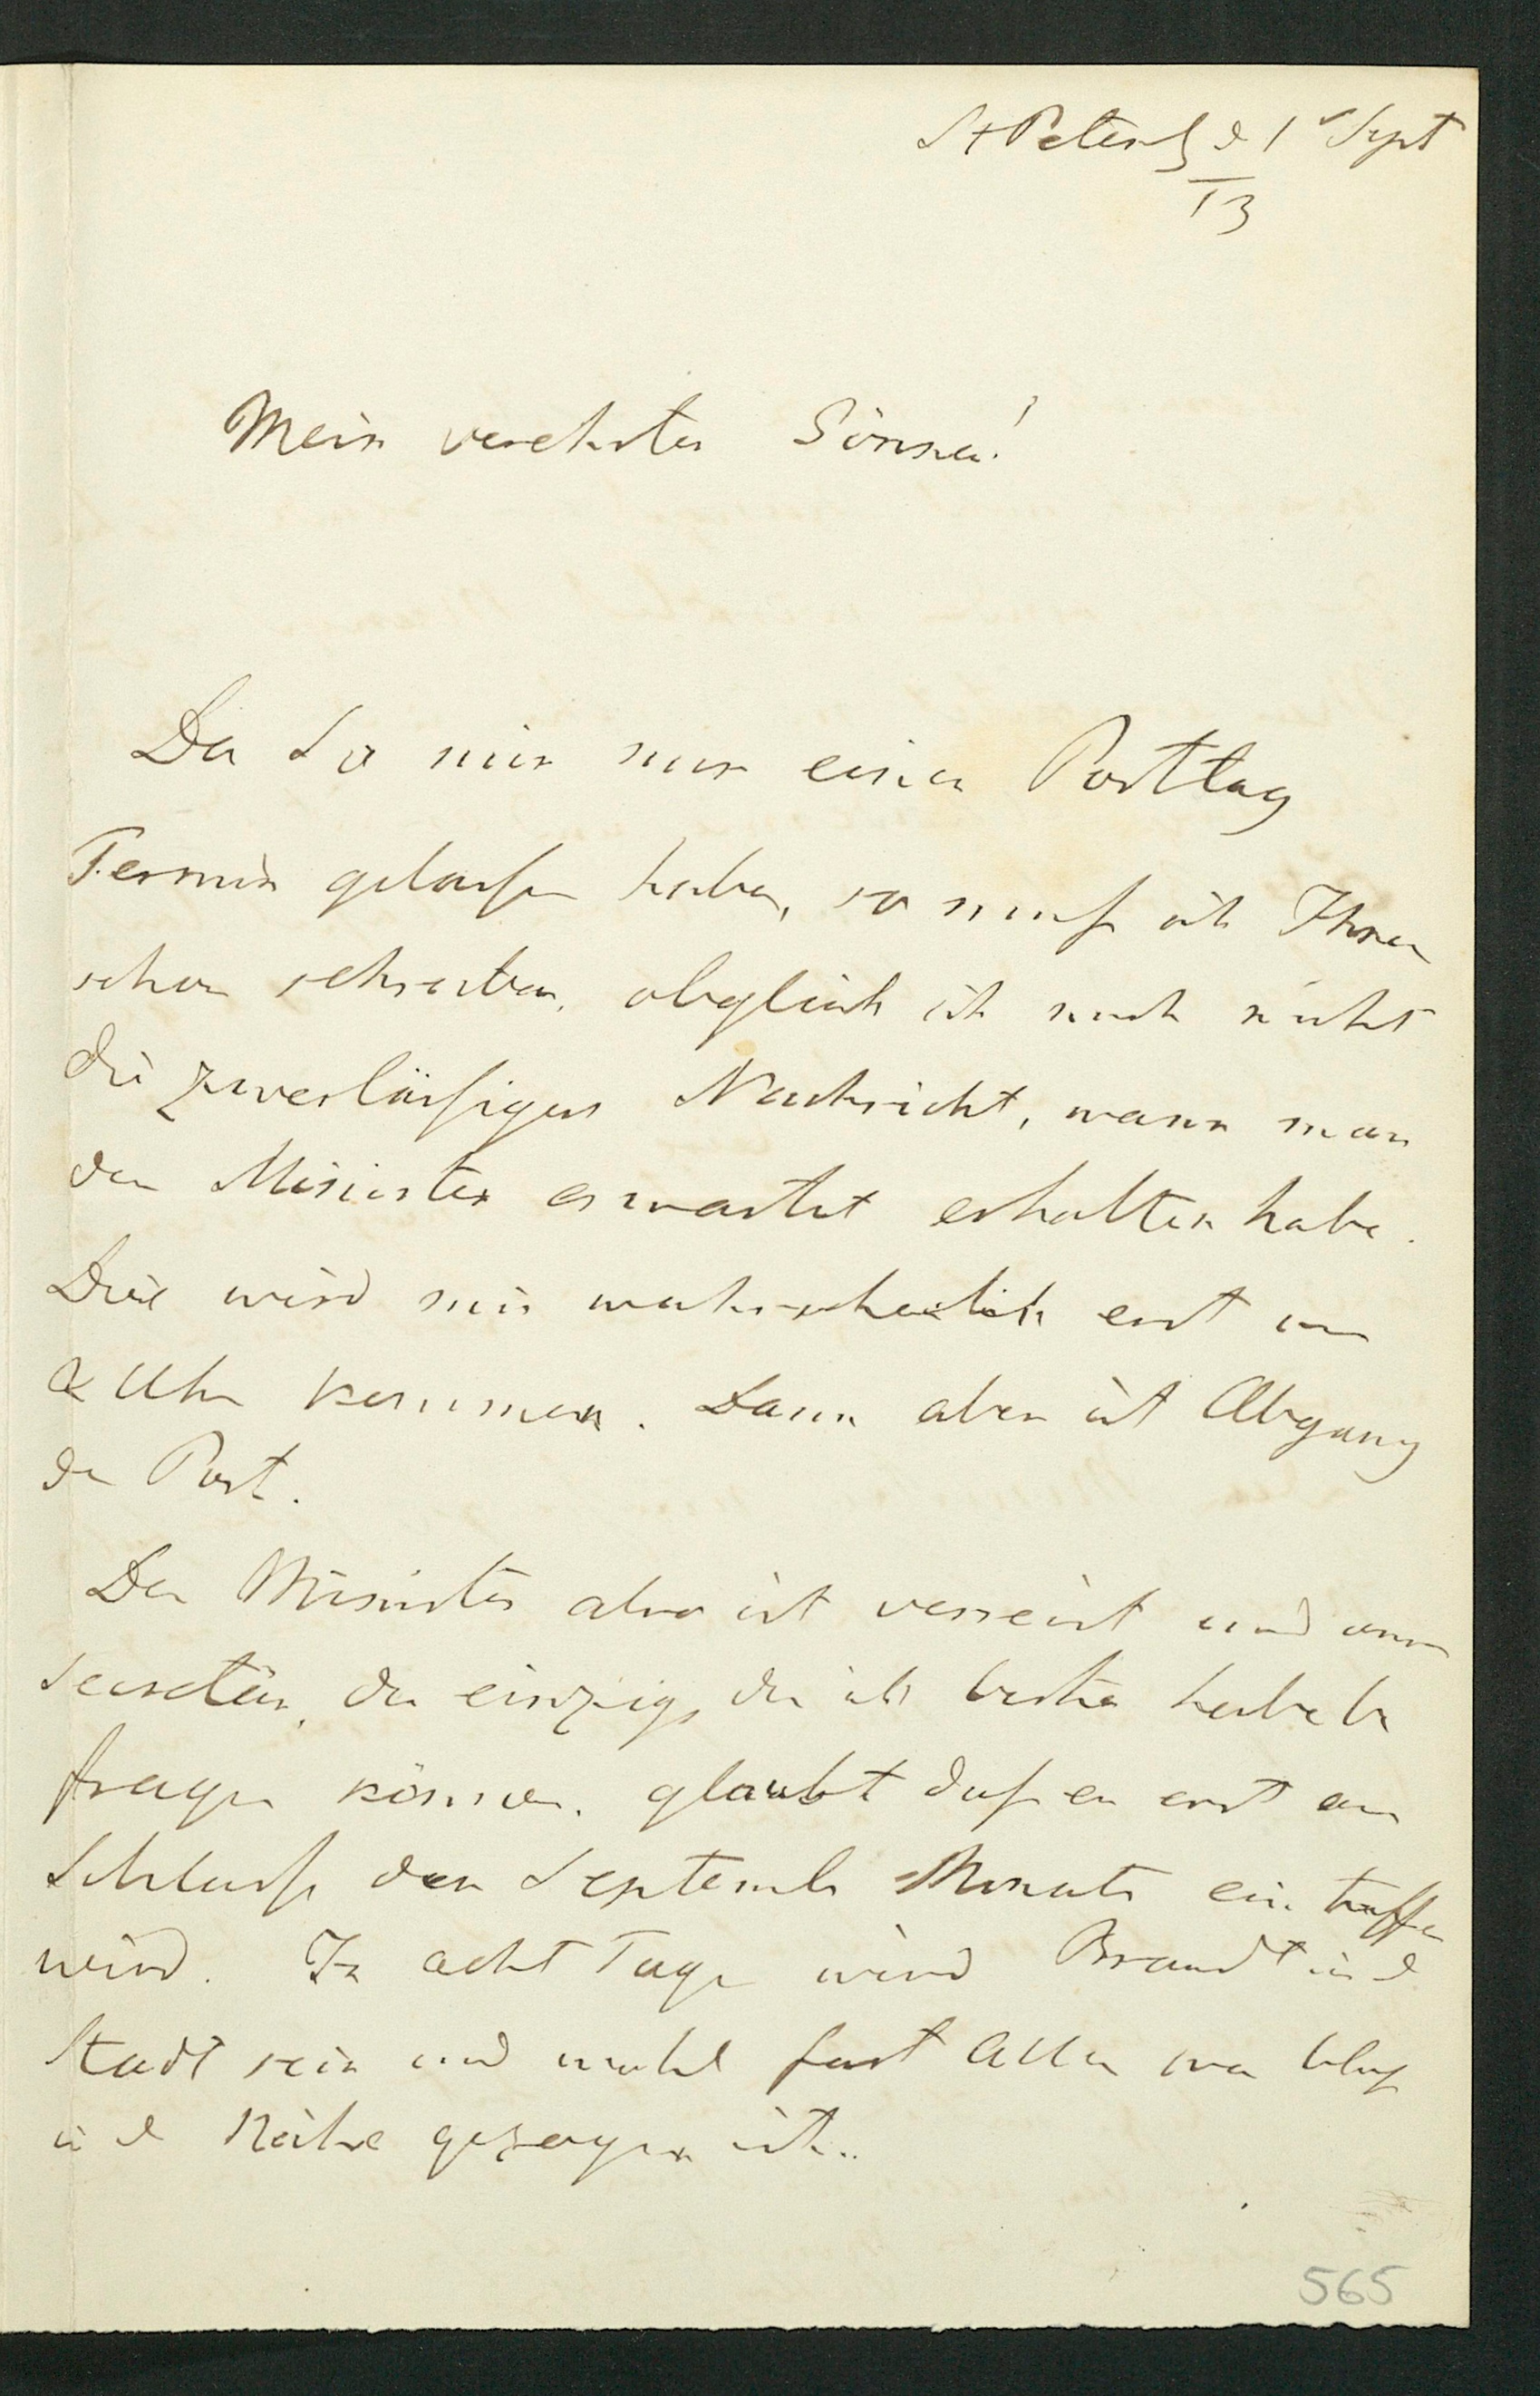 St Petersb d 1 Sept
13
Mein verehrter Gönner!
Da Sie mir nur einen Posttag
Termin gelassen haben, so muß ich Ihnen
schon schreiben, obgleich ich noch nicht
die zuverläßigere Nachricht, wann man
den Minister erwartet erhalten habe.
Diese wird mir wahrscheinlich erst um
2 Uhr kommen. Dann aber ist Abgang
der Post.
Der Minister also ist verreist und
Secretär, der einzige, den ich bisher habe be
fragen können, glaubt daß er erst am
Schlusse des September Monats eintreffen
wird. In acht Tagen wird Brandt in d
Stadt sein und wohl fast Alles was bloß
in d Nähe gezogen ist.
565